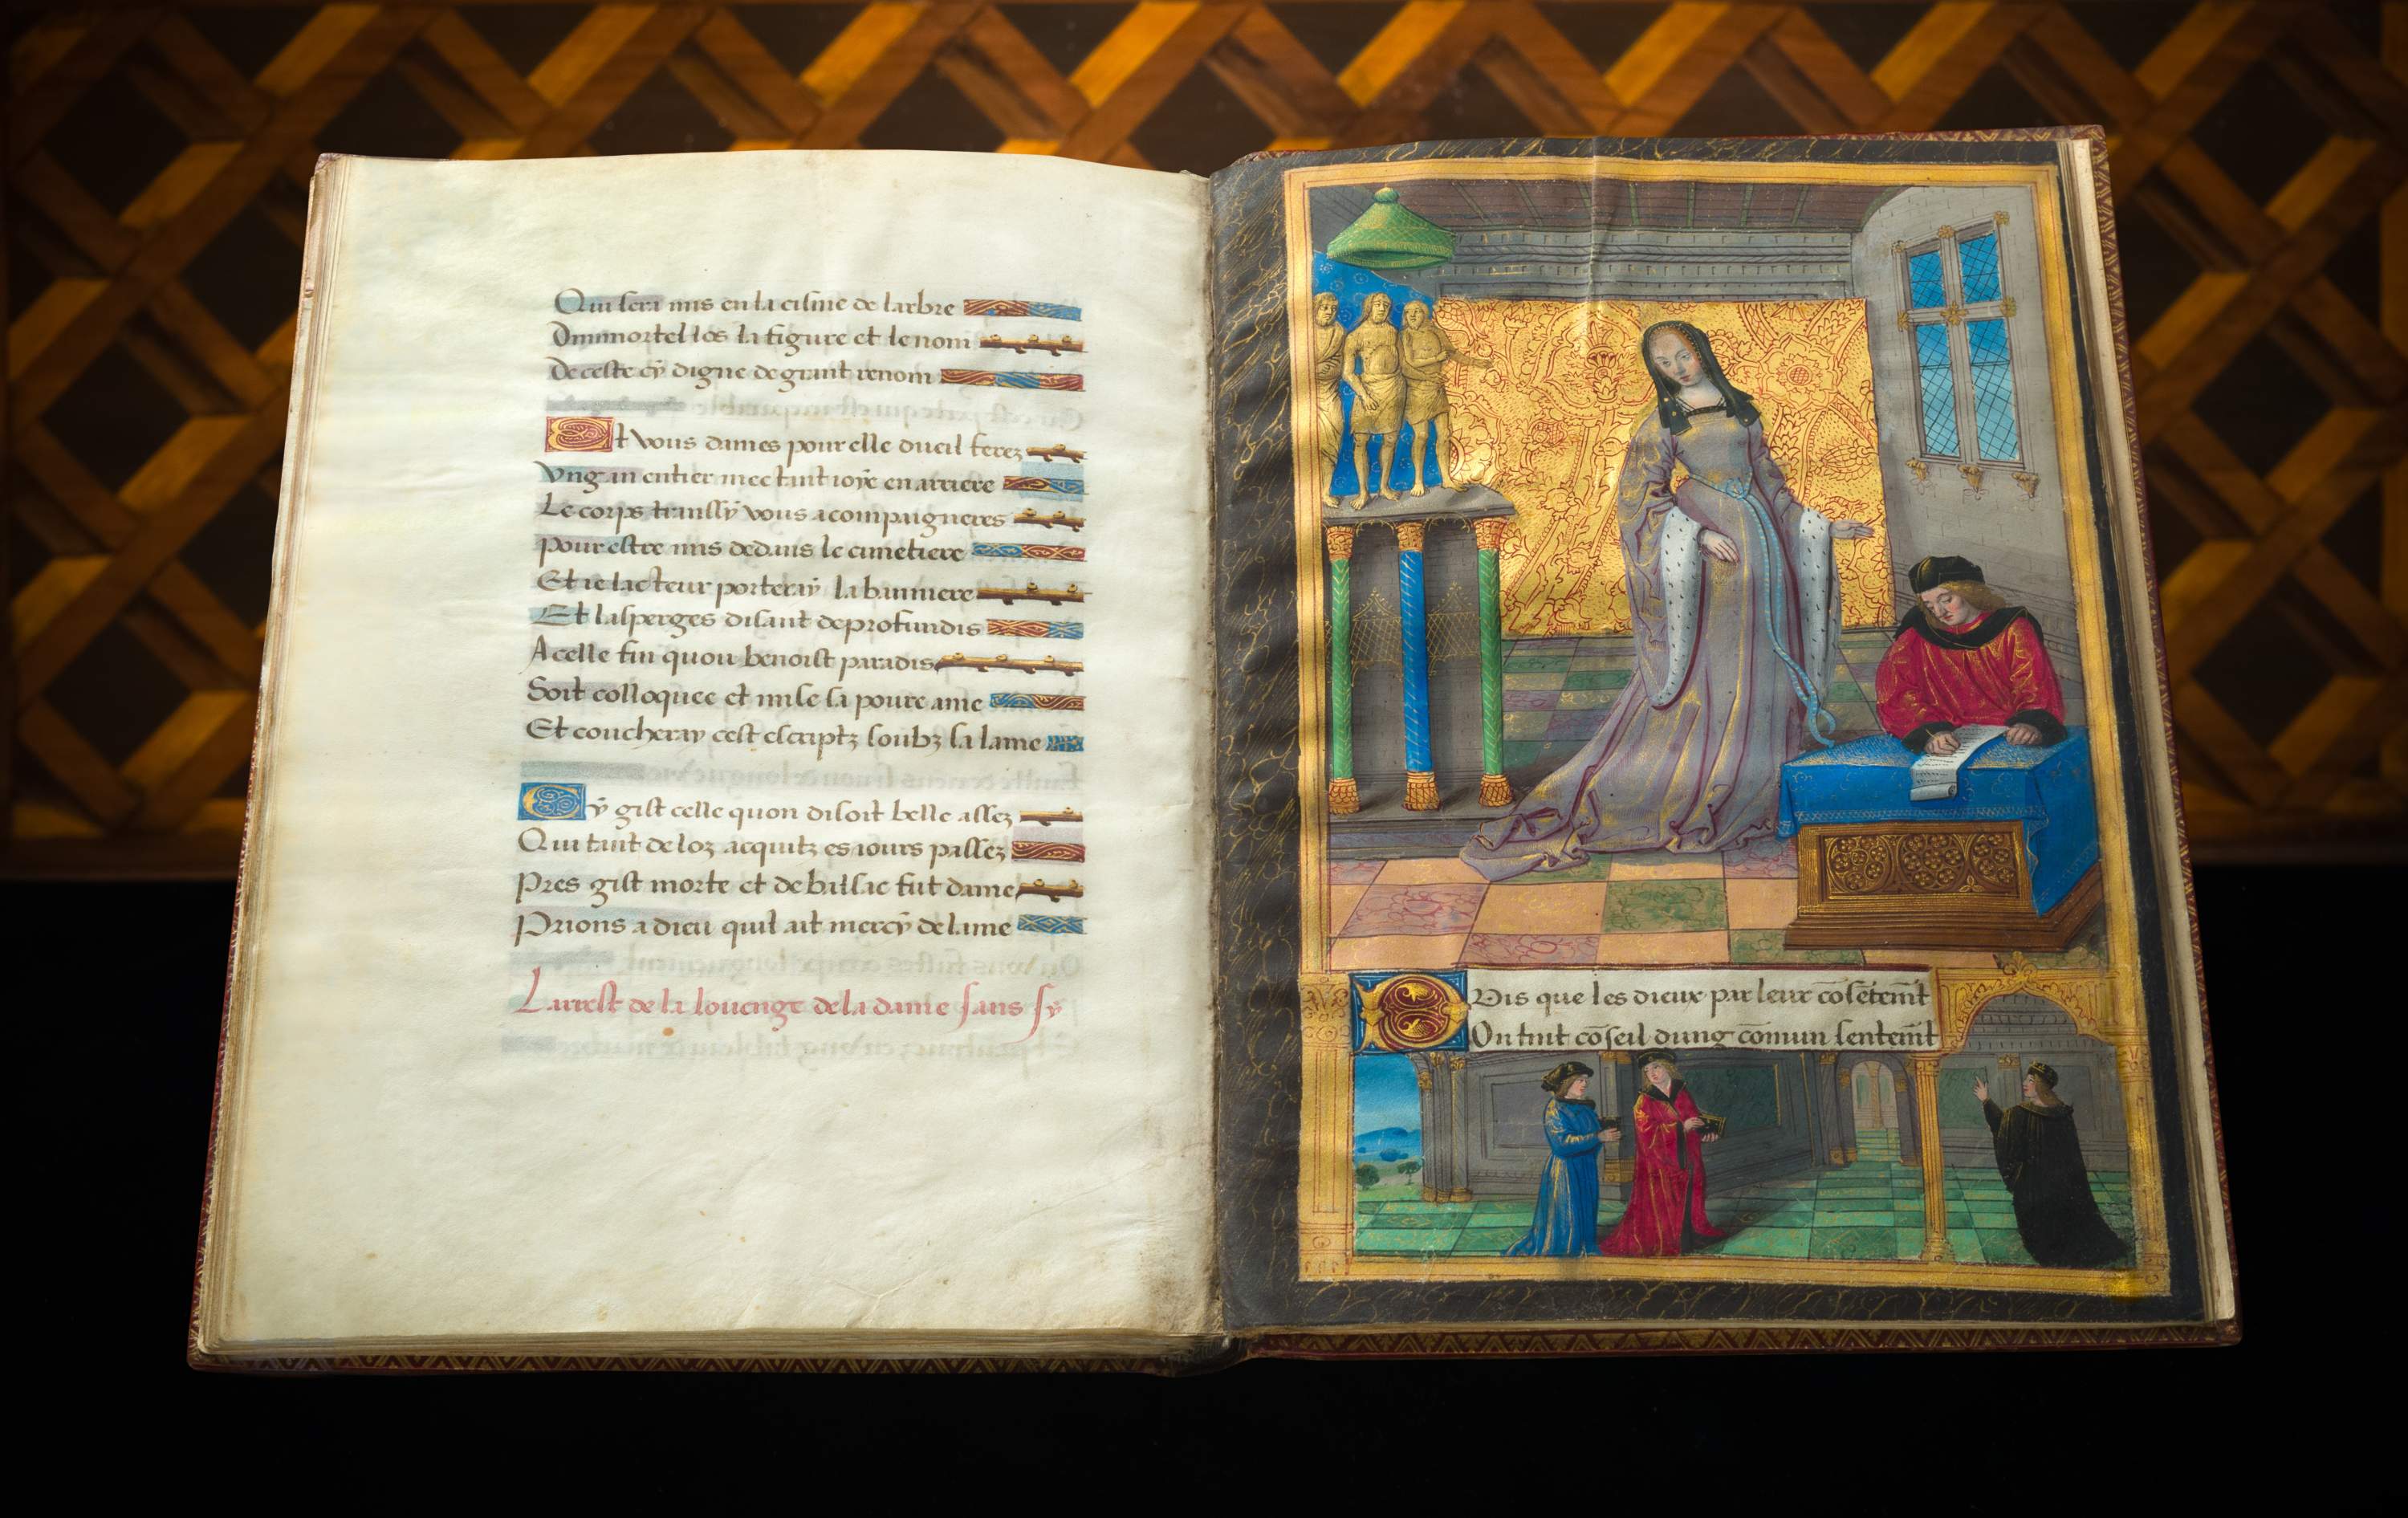 Qui sera mis en la cisme de larbre
Dimmortel los la figure et le nom
De ceste cÿ digne de grant renom
Et vous dames pour elle dueil ferez
Vng an entier mectant ioÿe en arriere
Le corps transsÿ vous acompaigneres
Pour estre mis dedans le cimetiere
Et ie lacteur porteraÿ la banniere
Et lasperges disant deprofundis
A celle fin quou benoist paradis
Soit colloquee et mise sa poure ame
Et coucheray cest escriptz soubz sa lame
Cÿ gist celle quon disoit belle assez
Qui tant de loz acquitz es iours passez
Pres gist morte et de balsac fut dame
Prions a dieu quil ait mercÿ de lame
Larrest de la louenge de la dame sans sÿ
Dis que les dieux par leur cõsẽtemt̃
Ont tint cõseil dung cõmun sentemt̃